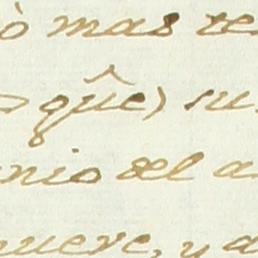 ò mas te
qûe) su
nio del a
uere, y a